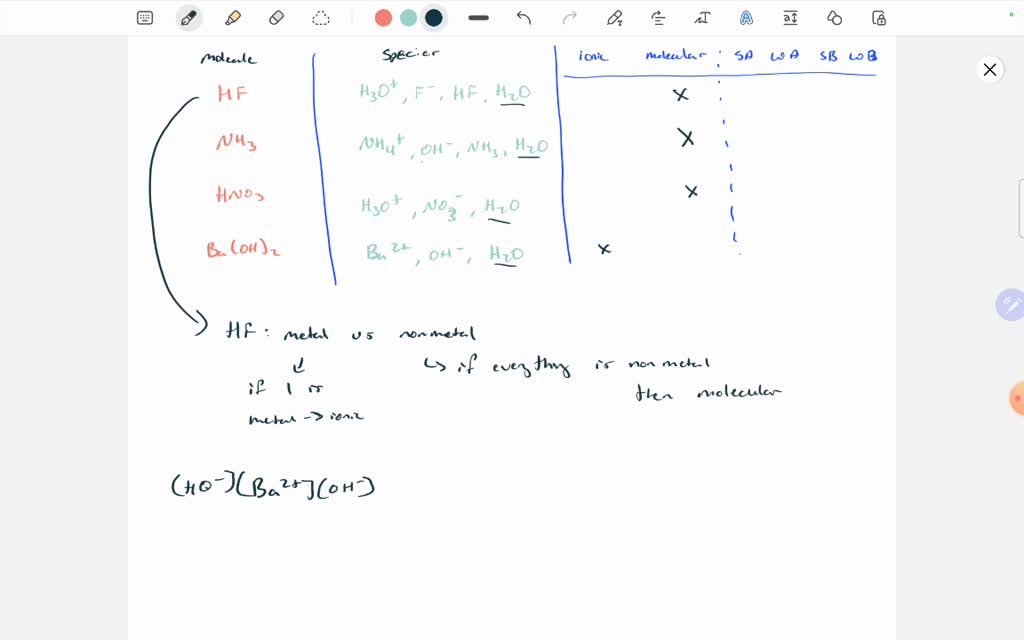 molecule species ionic molecular : SA WA SB WB
HF H₃O⁺, F⁻, HF, H₂O X
NH₃ NH₄⁺, OH⁻, NH₃, H₂O X
HNO₃ H₃O⁺, NO₃⁻, H₂O X
Ba(OH)₂ Ba²⁺, OH⁻, H₂O X
HF: metal vs nonmetal
↳ if everything is non metal
then molecular
if 1 is
metal -> ionic
(HO⁻][Ba²⁺](OH⁻)